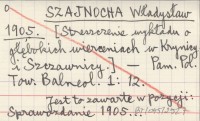 SZAJNOCHA Władysław
1905. [Streszczenie wykładu o
głębokich wierceniach w Krynicy
i Szczawnicy.] — Pam. Pol.
Tow. Balneol. 1: 12.
Jest to zawarte w pozycji:
Sprawozdanie 1905...